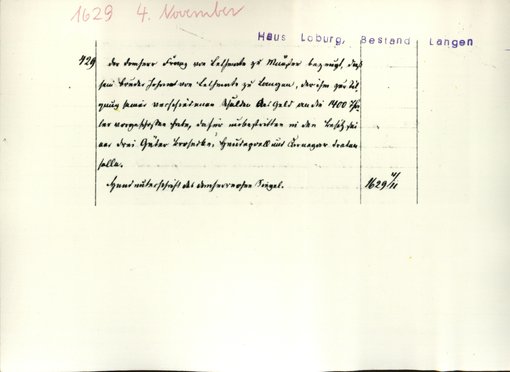 1629 4. November
Haus Loburg, Bestand Langen
429 Der Domherr Franz von Letmate zu Münster bezeugt, daß
sein Bruder Johann von Letmate zu Langen, der ihm zur Til
gung seiner verschiedenen Schulden das Geld an die 1400 Tha
ler vorgeschossen habe, dafür unbestritten in den Besitz sei
ner drei Güter und treten
solle.
Handunterschrift des Domherrn ohne Siegel. 1629 4/11